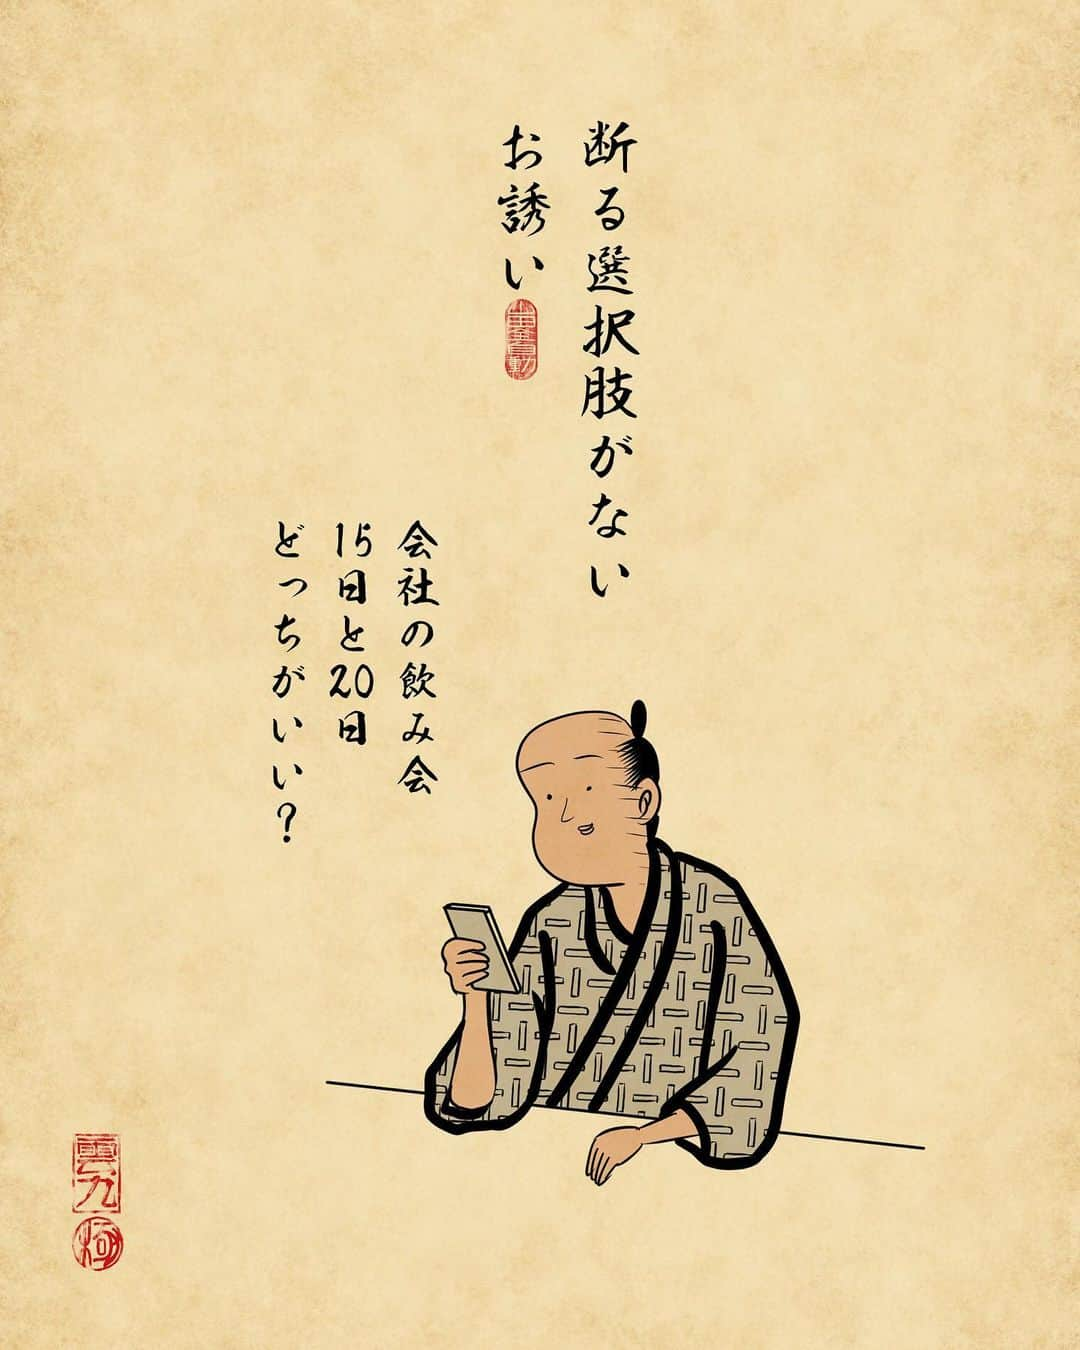 断る選択肢がない
お誘い
会社の飲み会
15日と20日
どっちがいい？